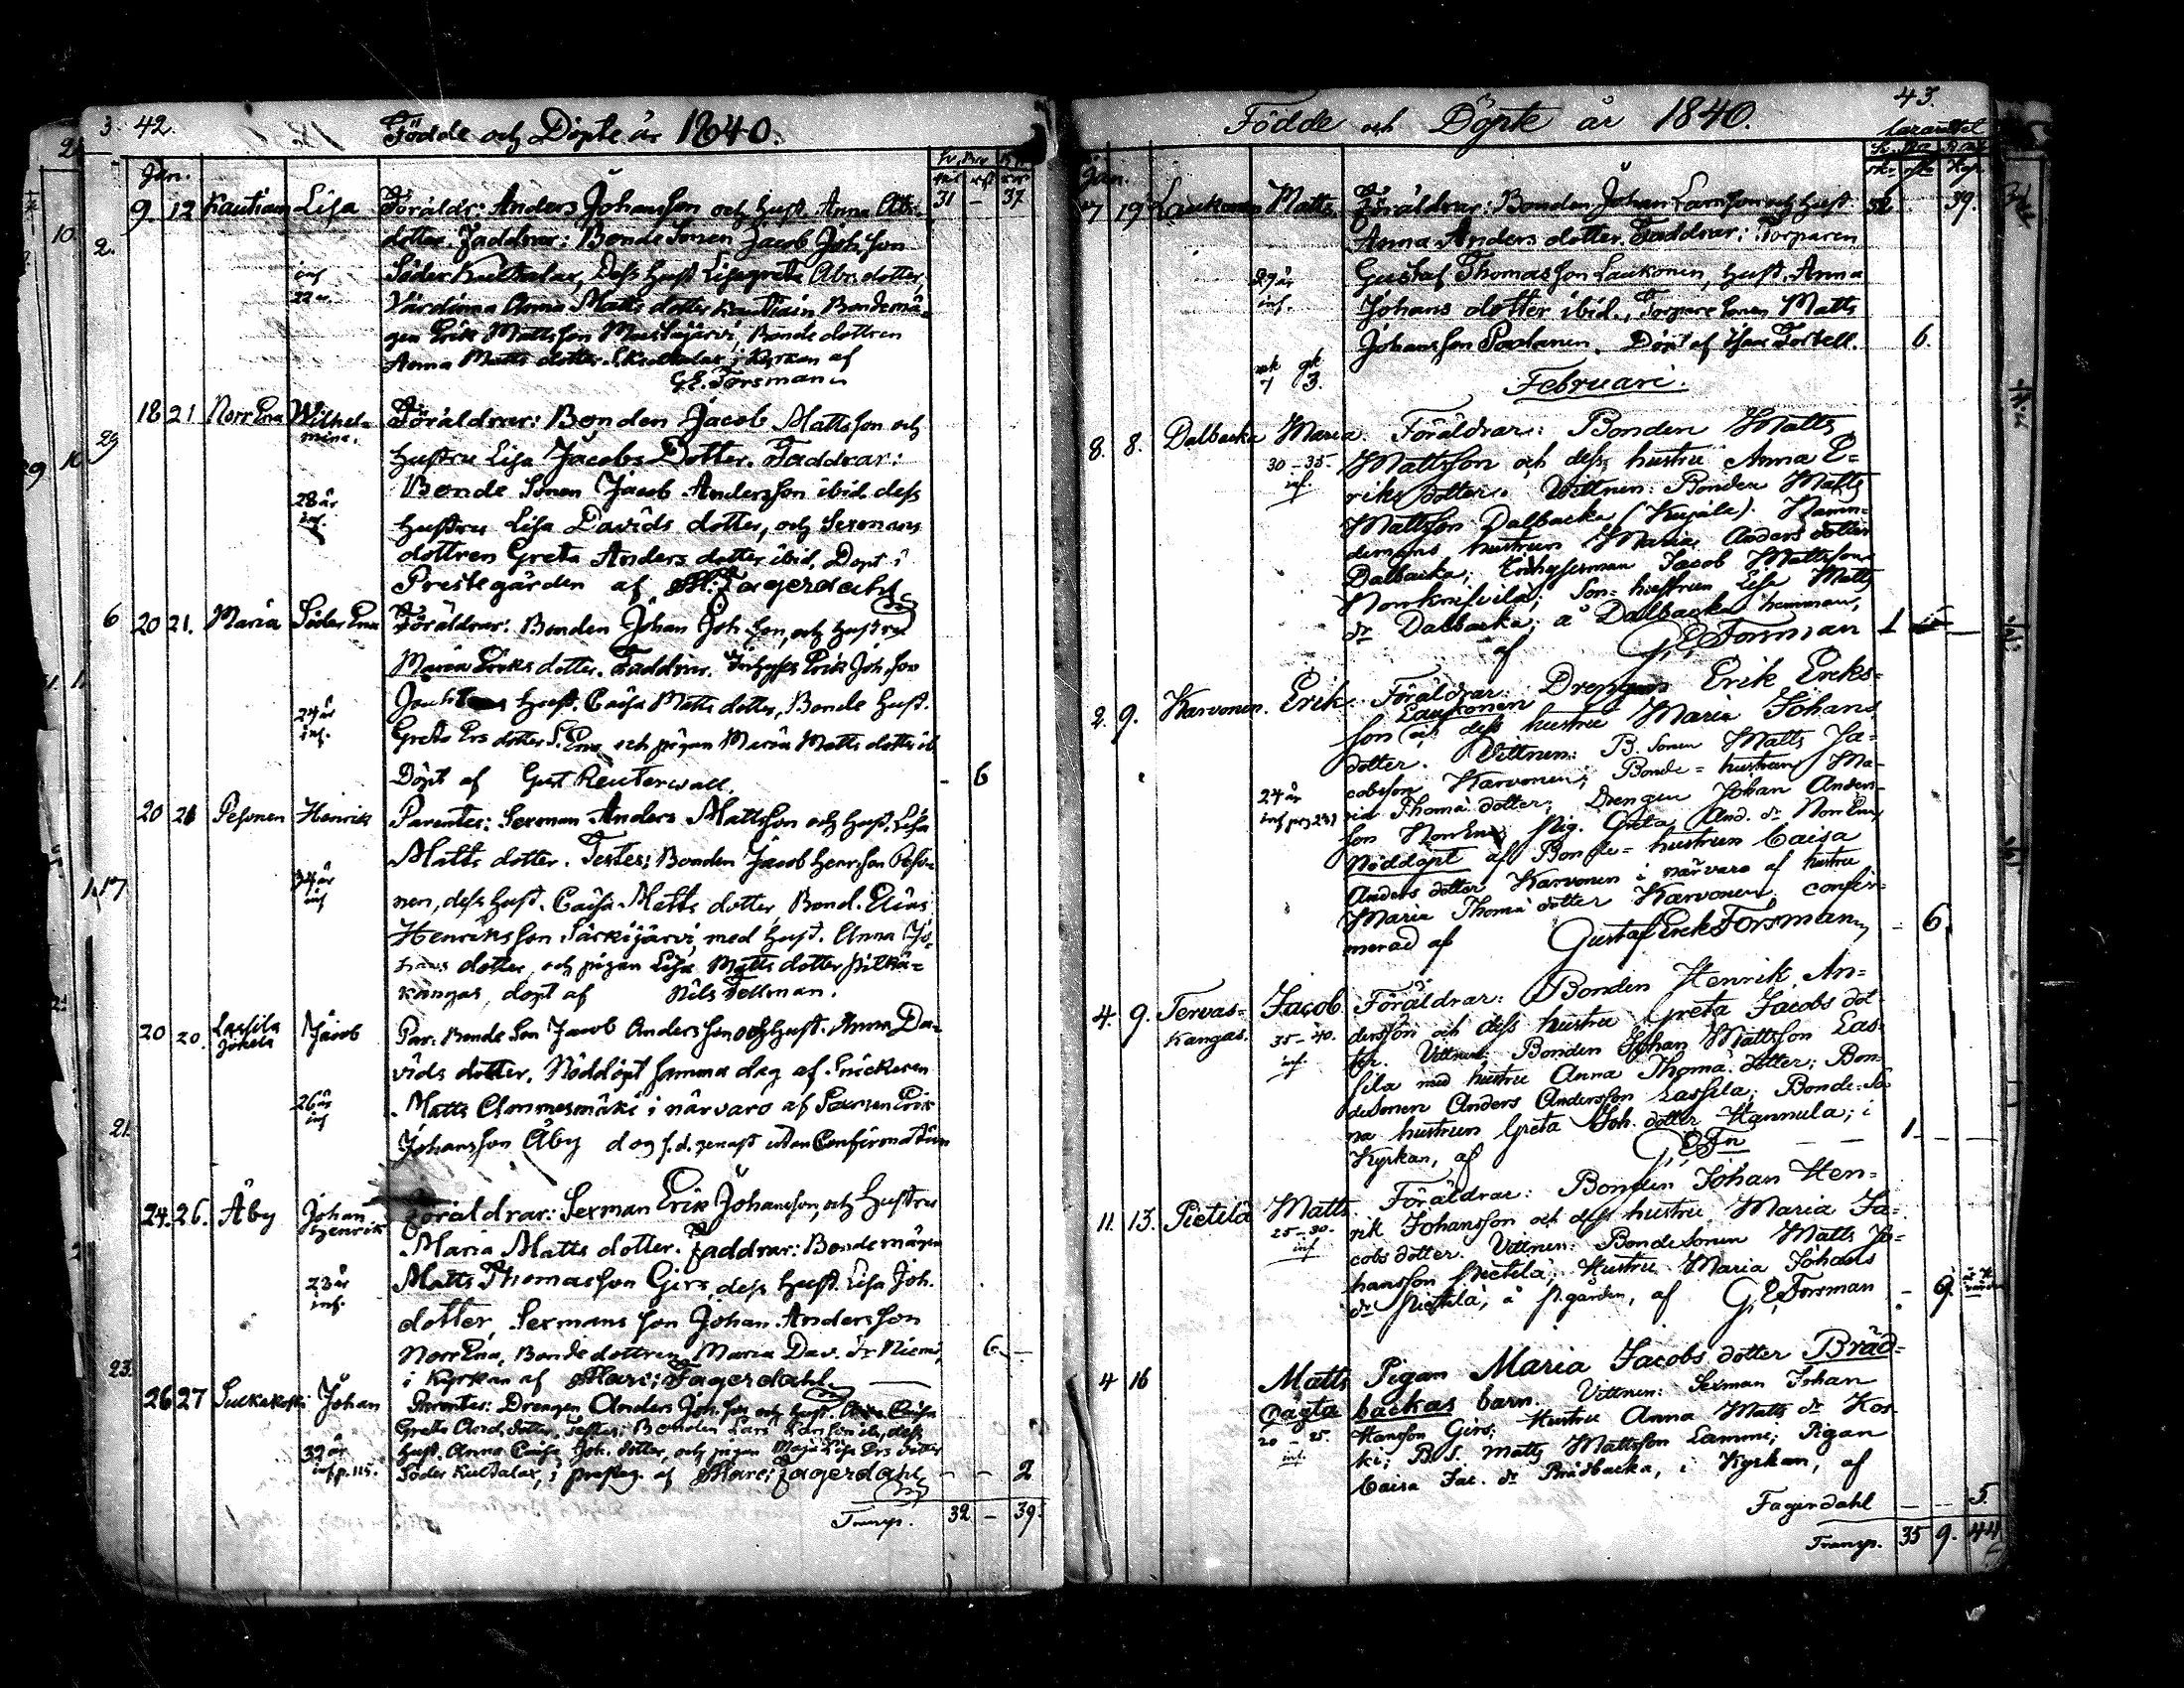 42.
Födde och Döpte år 1840.
Jan.
9. 12 Kautiain Lisa Föräldr: Anders Johansson och Hust. Anna Abr. 31 – 37
dotter. Faddrar: Bonde Sonen Jacob Joh.sson
Söder Kultalax, Dess Hust Lisagreta Abr. dotter,
inf 22 år
Värdinna Anna Matts dotter Kautiain Bondemå-
gen Erik Mattsson Mustajärvi, Bonde dottren
Anna Matts dotter S. Kultalax i Kyrkan af
G.E. Forsman
18 21 Norr Ena Wilhel-mina. Föräldrar: Bonden Jacob Mattsson och
Hustru Lisa Jacobs Dotter. Faddrar:
28 år inf.
Bonde Sonen Jacob Andersson ibid. dess
Hustru Lisa Davids dotter, och Sexmans
dottren Greta Anders dotter ibid. Döpt i
Prestegården af M: Fagerdahl
20 21. Maria Söder Ena Föräldrar: Bonden Johan Joh.son, och Hustru
Maria Eriks dotter. Faddrar. Erik Joh.son
24 år inf.
Hust. Caisa Matts dotter, Bonde Hust.
Greta Ers dotter S. Ena och pigan Maria Matts dotter ib
Döpt af Gust Reuterwall. – 6
20 21 Pesonen Henrik Parentes: Sexman Anders Mattsson och Hust. Lisa
Matts dotter. Testes: Bonden Jacob Henr.sson Peso-
34 år inf
nen, dess Hust. Caisa Matts dotter, Bond. Elias
Henriksson Särkijärvi, med Hust. Anna Jo-
hans dotter, och pigan Lisa Matts dotter Pitkä-
kangas, döpt af Nils Fellman.
20 20. Lassila Jokela Jacob Par: Bonde Son Jacob Andersson och Hust. Anna Da-
vids dotter. Nöddöpt samma dag af Snickaren
26 år inf
Matts Ammesmäki i närvaro af Erik
Johansson Åby dog s.d. genast utan Confirmation
24. 26. Åby Johan Henrik Föräldrar: Sexman Erik Johansson, och Hustru
Maria Matts dotter. Faddrar: Bondemågen
23 år inf.
Matts Thomasson Girs, dess Hust. Lisa Joh.
dotter, Sexmans Son Johan Andersson
Norr Ena, Bonde dottren Maria Dav. dr Niemi, 6 –
i Kyrkan af Marc: Fagerdahl
26 27 Johan Parentes: Drengen Anders Joh.son och Hust. Caisa
Greta And. dotter. Testes: Bonden Lars dess
39 år inf. p. 115.
Hust. Anna Caisa Joh. dotter, och pigan Maja Lisa Ers dotter
Söder Kultalax, i prestg. af Marc: Fagerdahl – – 2
Transp. 32 – 39.
43.
Födde och Döpte år 1840.
Lazarettet
Jan.
17 19 Laukonen Matts Föräldrar: Bonden Johan Larsson och Hust 32 39.
Anna Anders dotter. Faddrar: Torparen
29 år inf.
Gustaf Thomasson Laukonen, Hust. Anna
Johans dotter ibid., Torpare Sonen Matts
Johansson Pantanen. Döpt af Isac Forsell. 6.
mk 7 qk 3.
Februari.
8. 8. Dalbacka Maria Föräldrar: Bonden Matts
30–35. inf
Mattsson och dess hustru Anna E-
riks dotter. Vittnen: Bonden Matts
Mattsson Dalbacka (Kujala). Nämn-
demans hustrun Maria Anders dotter
Dalbacka; Jacob Mattsson
Norrknifvilä; Son-hustrun Lisa Matts
dr Dalbacka; å Dalbacka hemman,
af G.E. Forsman 1 –
2. 9. Karvonen. Erik Föräldrar: Drengen Erik Eriks-
Laukonen
son och dess hustru Maria Johans
dotter. Vittnen: B. Sonen Matts Ja-
cobsson Karvonen; Bonde-hustrun Ma-
24 år inf
ria Thomæ dotter; Drengen Johan Anders-
son Norr Ena; Pig. Greta And. dr Norr Ena,
Nöddöpt af Bonde-hustrun Caisa
Anders dotter Karvonen i närvaro af hustru
Maria Thomæ dotter Karvonen. confir-
merad af Gustaf Erik Forsman – 6.
4. 9. Tervas-kangas. Jacob Föräldrar: Bonden Henrik An-
35–40. inf
dersson och dess hustru Greta Jacobs dot-
ter. Vittnen: Bonden Johan Mattsson Las-
sila med hustru Anna Thomæ dotter; Bon-
desonen Anders Andersson Lassila; Bonde-So-
na hustrun Greta Joh. dotter Hannula; i
Kyrkan, af G.E. Fn 1 – –
11. 13. Pietilä Matts Föräldrar: Bonden Johan Hen-
25–30. inf
rik Johansson och dess hustru Maria Ja-
cobs dotter. Vittnen: Bondesonen Matts Jo-
hansson Pietilä; Hustru Maria Johans
dr Pietilä; å P.gården, af G.E. Forsman – 9.
4 16 Matts Pigan Maria Jacobs dotter Bräd-
Oägta backas barn. Vittnen: Sexman Johan
20–25. inf.
Hansson Girs; Hustru Anna Matts dr Kos-
ki; B.S. Matts Mattsson Lamme; Pigan
Caisa Jac. dr Brädbacka, i Kyrkan, af
Fagerdahl – – 5.
Transp. 35 9. 44